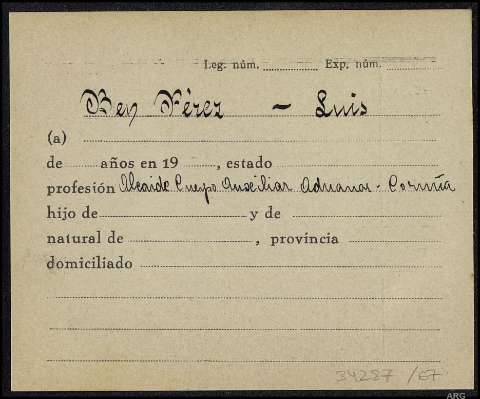 Leg. núm. Exp. núm.
Rey Pérez - Luis
(a)
de años en 19 , estado
profesión Alcaide Cuerpo Auxiliar Aduanas - Coruña
hijo de y de
natural de , provincia
domiciliado
34287/67
ARG